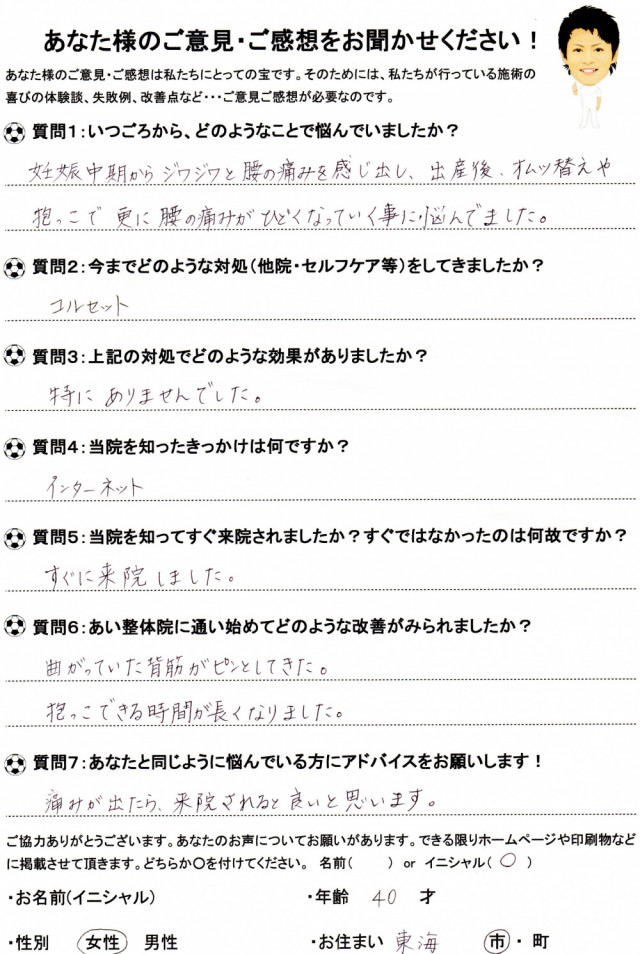 あなた様のご意見・ご感想をお聞かせください！
あなた様のご意見・ご感想は私たちにとっての宝です。そのためには、私たちが行っている施術の
喜びの体験談、失敗例、改善点など・・・ご意見ご感想が必要なのです。
質問１：いつごろから、どのようなことで悩んでいましたか？
妊娠中期からジワジワと腰の痛みを感じ出し、出産後、オムツ替えや
抱っこで更に腰の痛みがひどくなっていく事に悩んでました。
質問２：今までどのような対処（他院・セルフケア等）をしてきましたか？
コルセット
質問３：上記の対処でどのような効果がありましたか？
特にありませんでした。
質問４：当院を知ったきっかけは何ですか？
インターネット
質問５：当院を知ってすぐ来院されましたか？すぐではなかったのは何故ですか？
すぐに来院しました。
質問６：あい整体院に通い始めてどのような改善がみられましたか？
曲がっていた背筋がピンとしてきた。
抱っこできる時間が長くなりました。
質問７：あなたと同じように悩んでいる方にアドバイスをお願いします！
痛みが出たら、来院されると良いと思います。
ご協力ありがとうございます。あなたのお声についてお願いがあります。できる限りホームページや印刷物など
に掲載させて頂きます。どちらか〇を付けてください。 名前（　　） or イニシャル（ ○ ）
・お名前(イニシャル)　・年齢 40 才
・性別 女性 男性　・お住まい 東海 市・町